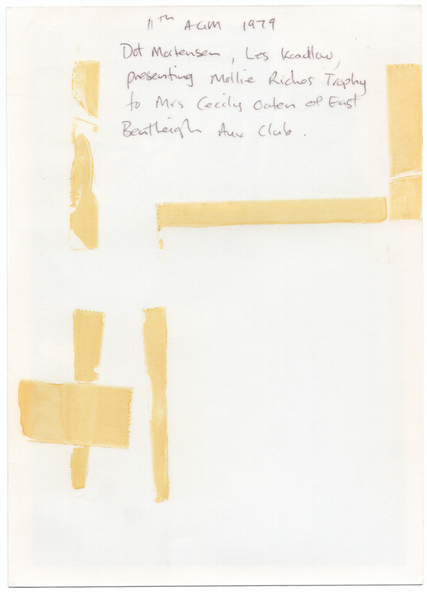 11th AGM 1979
Dot Mortensen, Les Kandlow,
presenting Mollie Riches Trophy
to Mrs Cecily Oaten of East
Bentleigh Aux Club.